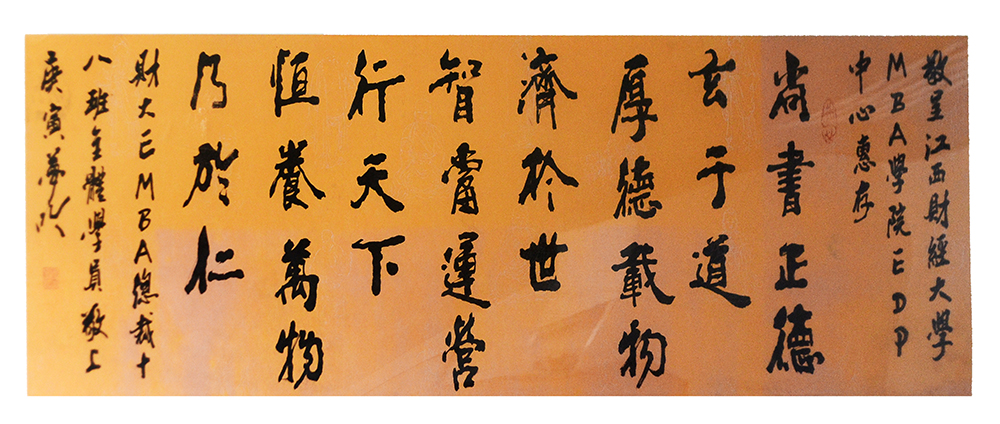 敬呈江西財經大學
MBA學院EDP
中心惠存
尚書正德
玄于道
厚德載物
濟於世
智運營
行天下
恒養萬物
乃於仁
財大EMBA總裁十
八班全體學員敬上
庚寅